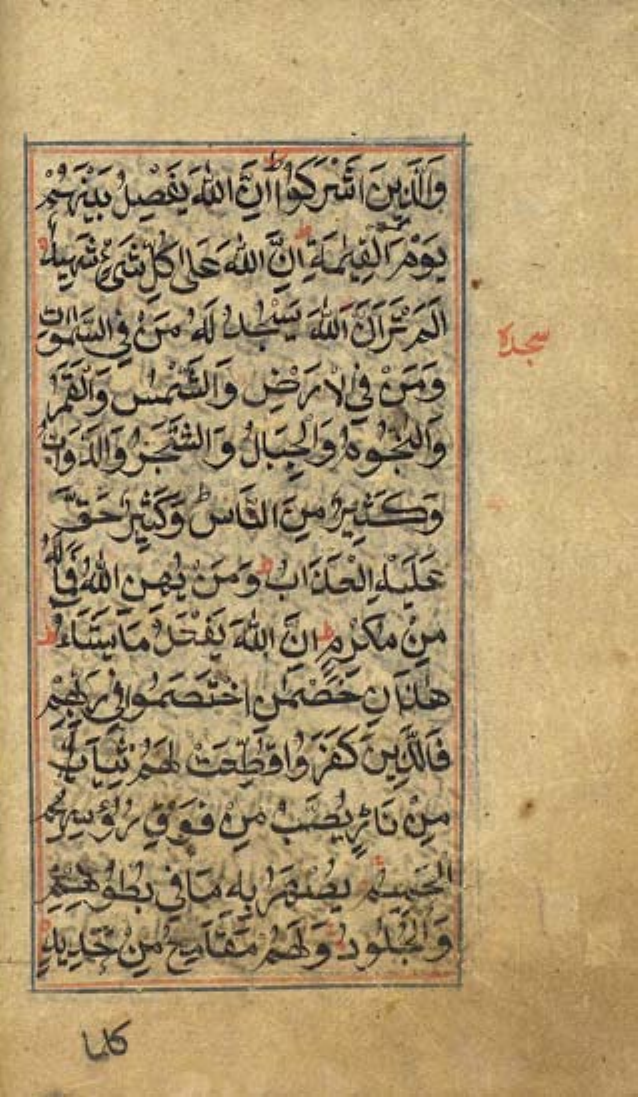 وَالَّذِينَ اَشْرَكُوا اِنَّ اللهَ يَفْصِلُ بَيْنَهُمْ
يَوْمَ الْقِيٰمَةِ اِنَّ اللهَ عَلٰى كُلِّ شَيْءٍ شَهِيدٌ
اَلَمْ تَرَ اَنَّ اللهَ يَسْجُدُ لَهُ مَنْ فِي السَّمٰوَاتِ
سجده
وَمَنْ فِي لْاَرْضِ وَالشَّمْسُ وَالْقَمَرُ
وَالنُّجُومُ وَالْجِبَالُ وَالشَّجَرُ وَالدَّوَابُّ
وَكَثِيرٌ مِنَ النَّاسِ ط وَكَثِيرٌ حَقَّ
عَلَيْهِ الْعَذَابُ ط وَمَنْ يُهِنِ اللهُ فَمَا لَهُ
مِنْ مُكْرِمٍ ط اِنَّ اللهَ يَفْعَلُ مَا يَشَاءُ ط
هٰذَانِ خَصْمٰنِ اخْتَصَمُوا فِي رَبِّهِمْ
فَالَّذِينَ كَفَرُوا قُطِّعَتْ لَهُمْ ثِيَابٌ
مِنْ نَارٍ يُصَبُّ مِنْ فَوْقِ رُؤُسِهِمُ
الْحَمِيمُ يُصْهَرُ بِهِ مَا فِي بُطُونِهِمْ
وَالْجُلُودُ وَلَهُمْ مَقَامِعُ مِنْ حَدِيدٍ
كلما